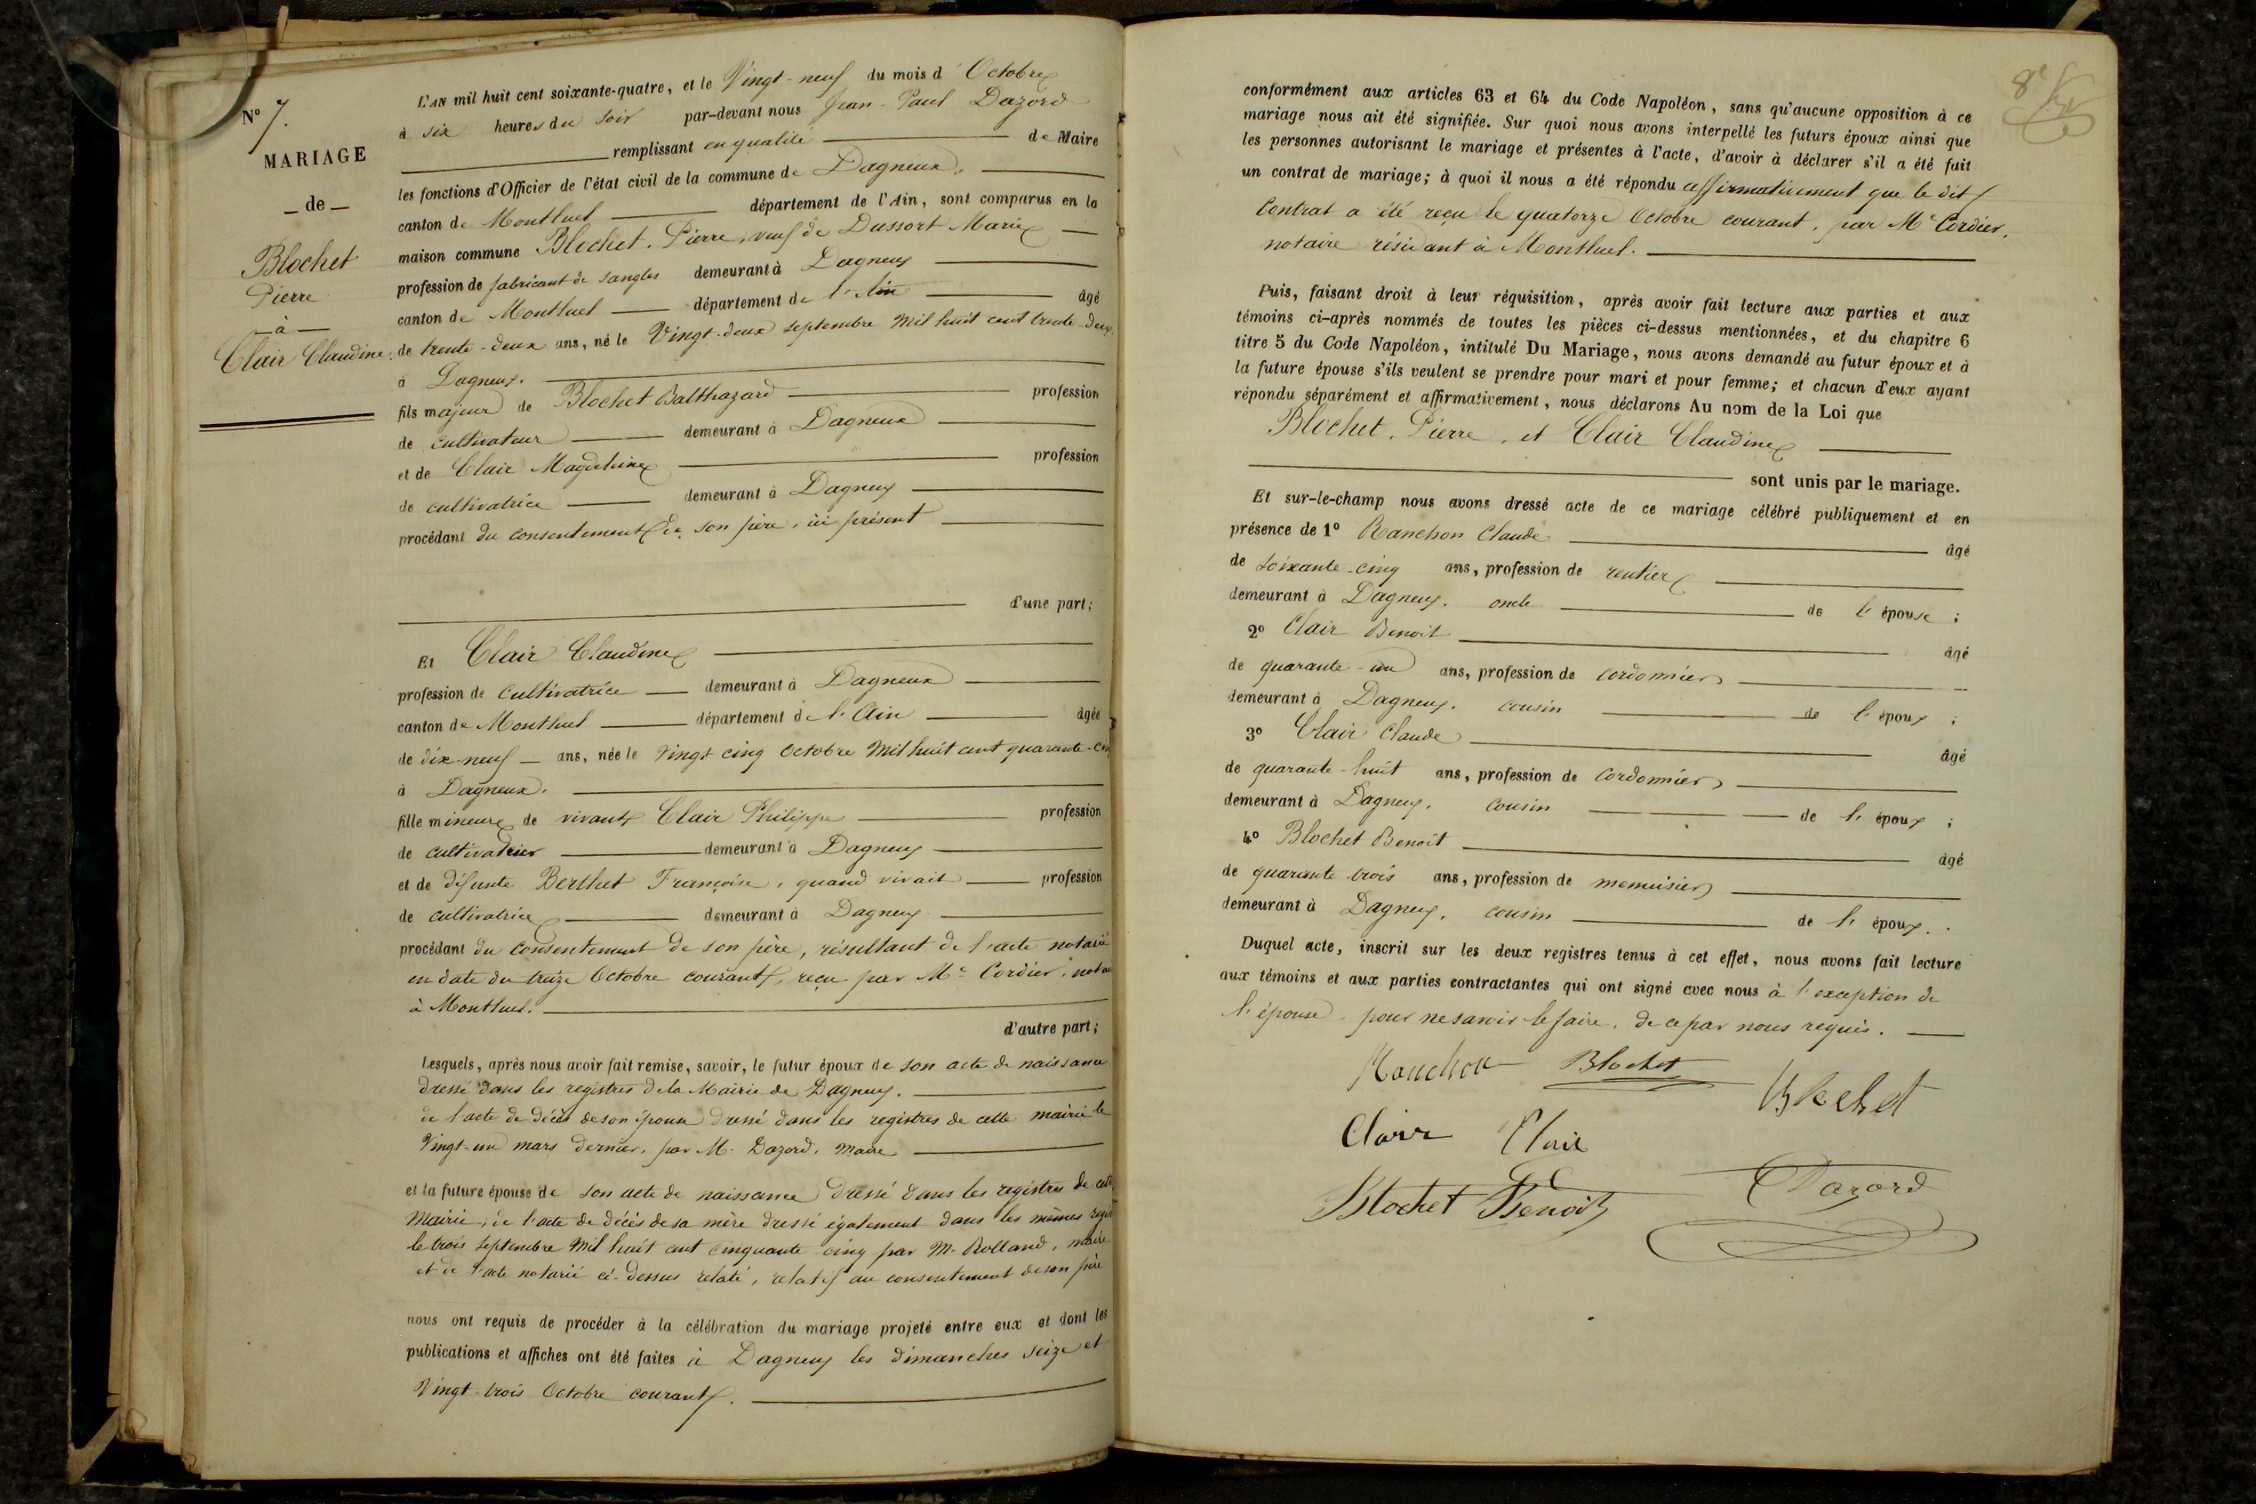 N° 7.
MARIAGE
de
Blochet
Pierre
à
Clair Claudine
L'AN mil huit cent soixante-quatre, et le Vingt-neuf du mois d'Octobre
à six heures du soir par-devant nous Jean-Paul Dazord
remplissant en qualité de Maire
les fonctions d'Officier de l'état civil de la commune de Dagneux,
canton de Montluel département de l'Ain, sont comparus en la
maison commune Blochet, Pierre, veuf de Dussort Marie
profession de fabricant de sangles demeurant à Dagneux
canton de Montluel département de l'Ain âgé
de trente-deux ans, né le Vingt-deux septembre Mil huit cent trente-deux
à Dagneux.
fils majeur de Blochet Balthazard profession
de cultivateur demeurant à Dagneux
et de Clair Magdeleine profession
de cultivatrice demeurant à Dagneux
procédant du consentement de son père, ici présent
d'une part;
Et Clair Claudine
profession de cultivatrice demeurant à Dagneux
canton de Montluel département de l'Ain âgée
de dix-neuf ans, née le Vingt cinq Octobre Mil huit cent quarante-cinq
à Dagneux.
fille mineure de vivant Clair Philippe profession
de cultivateur demeurant à Dagneux
et de défunte Berthet Françoise, quand vivait profession
de cultivatrice demeurant à Dagneux
procédant du consentement de son père, résultant de l'acte notarié
en date du treize Octobre courant, reçu par Me Cordier, notaire
à Montluel.
d'autre part;
Lesquels, après nous avoir fait remise, savoir, le futur époux de son acte de naissance
dressé dans les registres de la Mairie de Dagneux.
de l'acte de décès de son épouse dressé dans les registres de cette mairie le
Vingt-un mars dernier, par M. Dazord, Maire
et la future épouse de son acte de naissance dressé dans les registres de cette
Mairie, de l'acte de décès de sa mère dressé également dans les mêmes registres
le trois Septembre Mil huit cent cinquante-cinq par M. Rolland, maire
et de l'acte notarié ci-dessus relaté, relatif au consentement de son père
nous ont requis de procéder à la célébration du mariage projeté entre eux et dont les
publications et affiches ont été faites à Dagneux les dimanches seize et
Vingt-trois Octobre courant.
8e
conformément aux articles 63 et 64 du Code Napoléon, sans qu'aucune opposition à ce
mariage nous ait été signifiée. Sur quoi nous avons interpellé les futurs époux ainsi que
les personnes autorisant le mariage et présentes à l'acte, d'avoir à déclarer s'il a été fait
un contrat de mariage; à quoi il nous a été répondu affirmativement que le dit
Contrat a été reçu le quatorze Octobre courant, par Me Cordier,
notaire résidant à Montluel.
Puis, faisant droit à leur réquisition, après avoir fait lecture aux parties et aux
témoins ci-après nommés de toutes les pièces ci-dessus mentionnées, et du chapitre 6
titre 5 du Code Napoléon, intitulé Du Mariage, nous avons demandé au futur époux et à
la future épouse s'ils veulent se prendre pour mari et pour femme; et chacun d'eux ayant
répondu séparément et affirmativement, nous déclarons Au nom de la Loi que
Blochet, Pierre, et Clair Claudine
sont unis par le mariage.
Et sur-le-champ nous avons dressé acte de ce mariage célébré publiquement et en
présence de 1° Manchon Claude âgé
de soixante-cinq ans, profession de rentier
demeurant à Dagneux. oncle de l'épouse;
2° Clair Benoit âgé
de quarante-un ans, profession de cordonnier
demeurant à Dagneux. cousin de l'époux;
3° Clair Claude âgé
de quarante-huit ans, profession de cordonnier
demeurant à Dagneux. cousin de l'époux;
4° Blochet Benoît âgé
de quarante trois ans, profession de menuisier
demeurant à Dagneux, cousin de l'époux.
Duquel acte, inscrit sur les deux registres tenus à cet effet, nous avons fait lecture
aux témoins et aux parties contractantes qui ont signé avec nous à l'exception de
l'épouse pour ne savoir le faire, de ce par nous requis.
Manchon Blochet Blochet
Clair Clair
Blochet Benoit Dazord